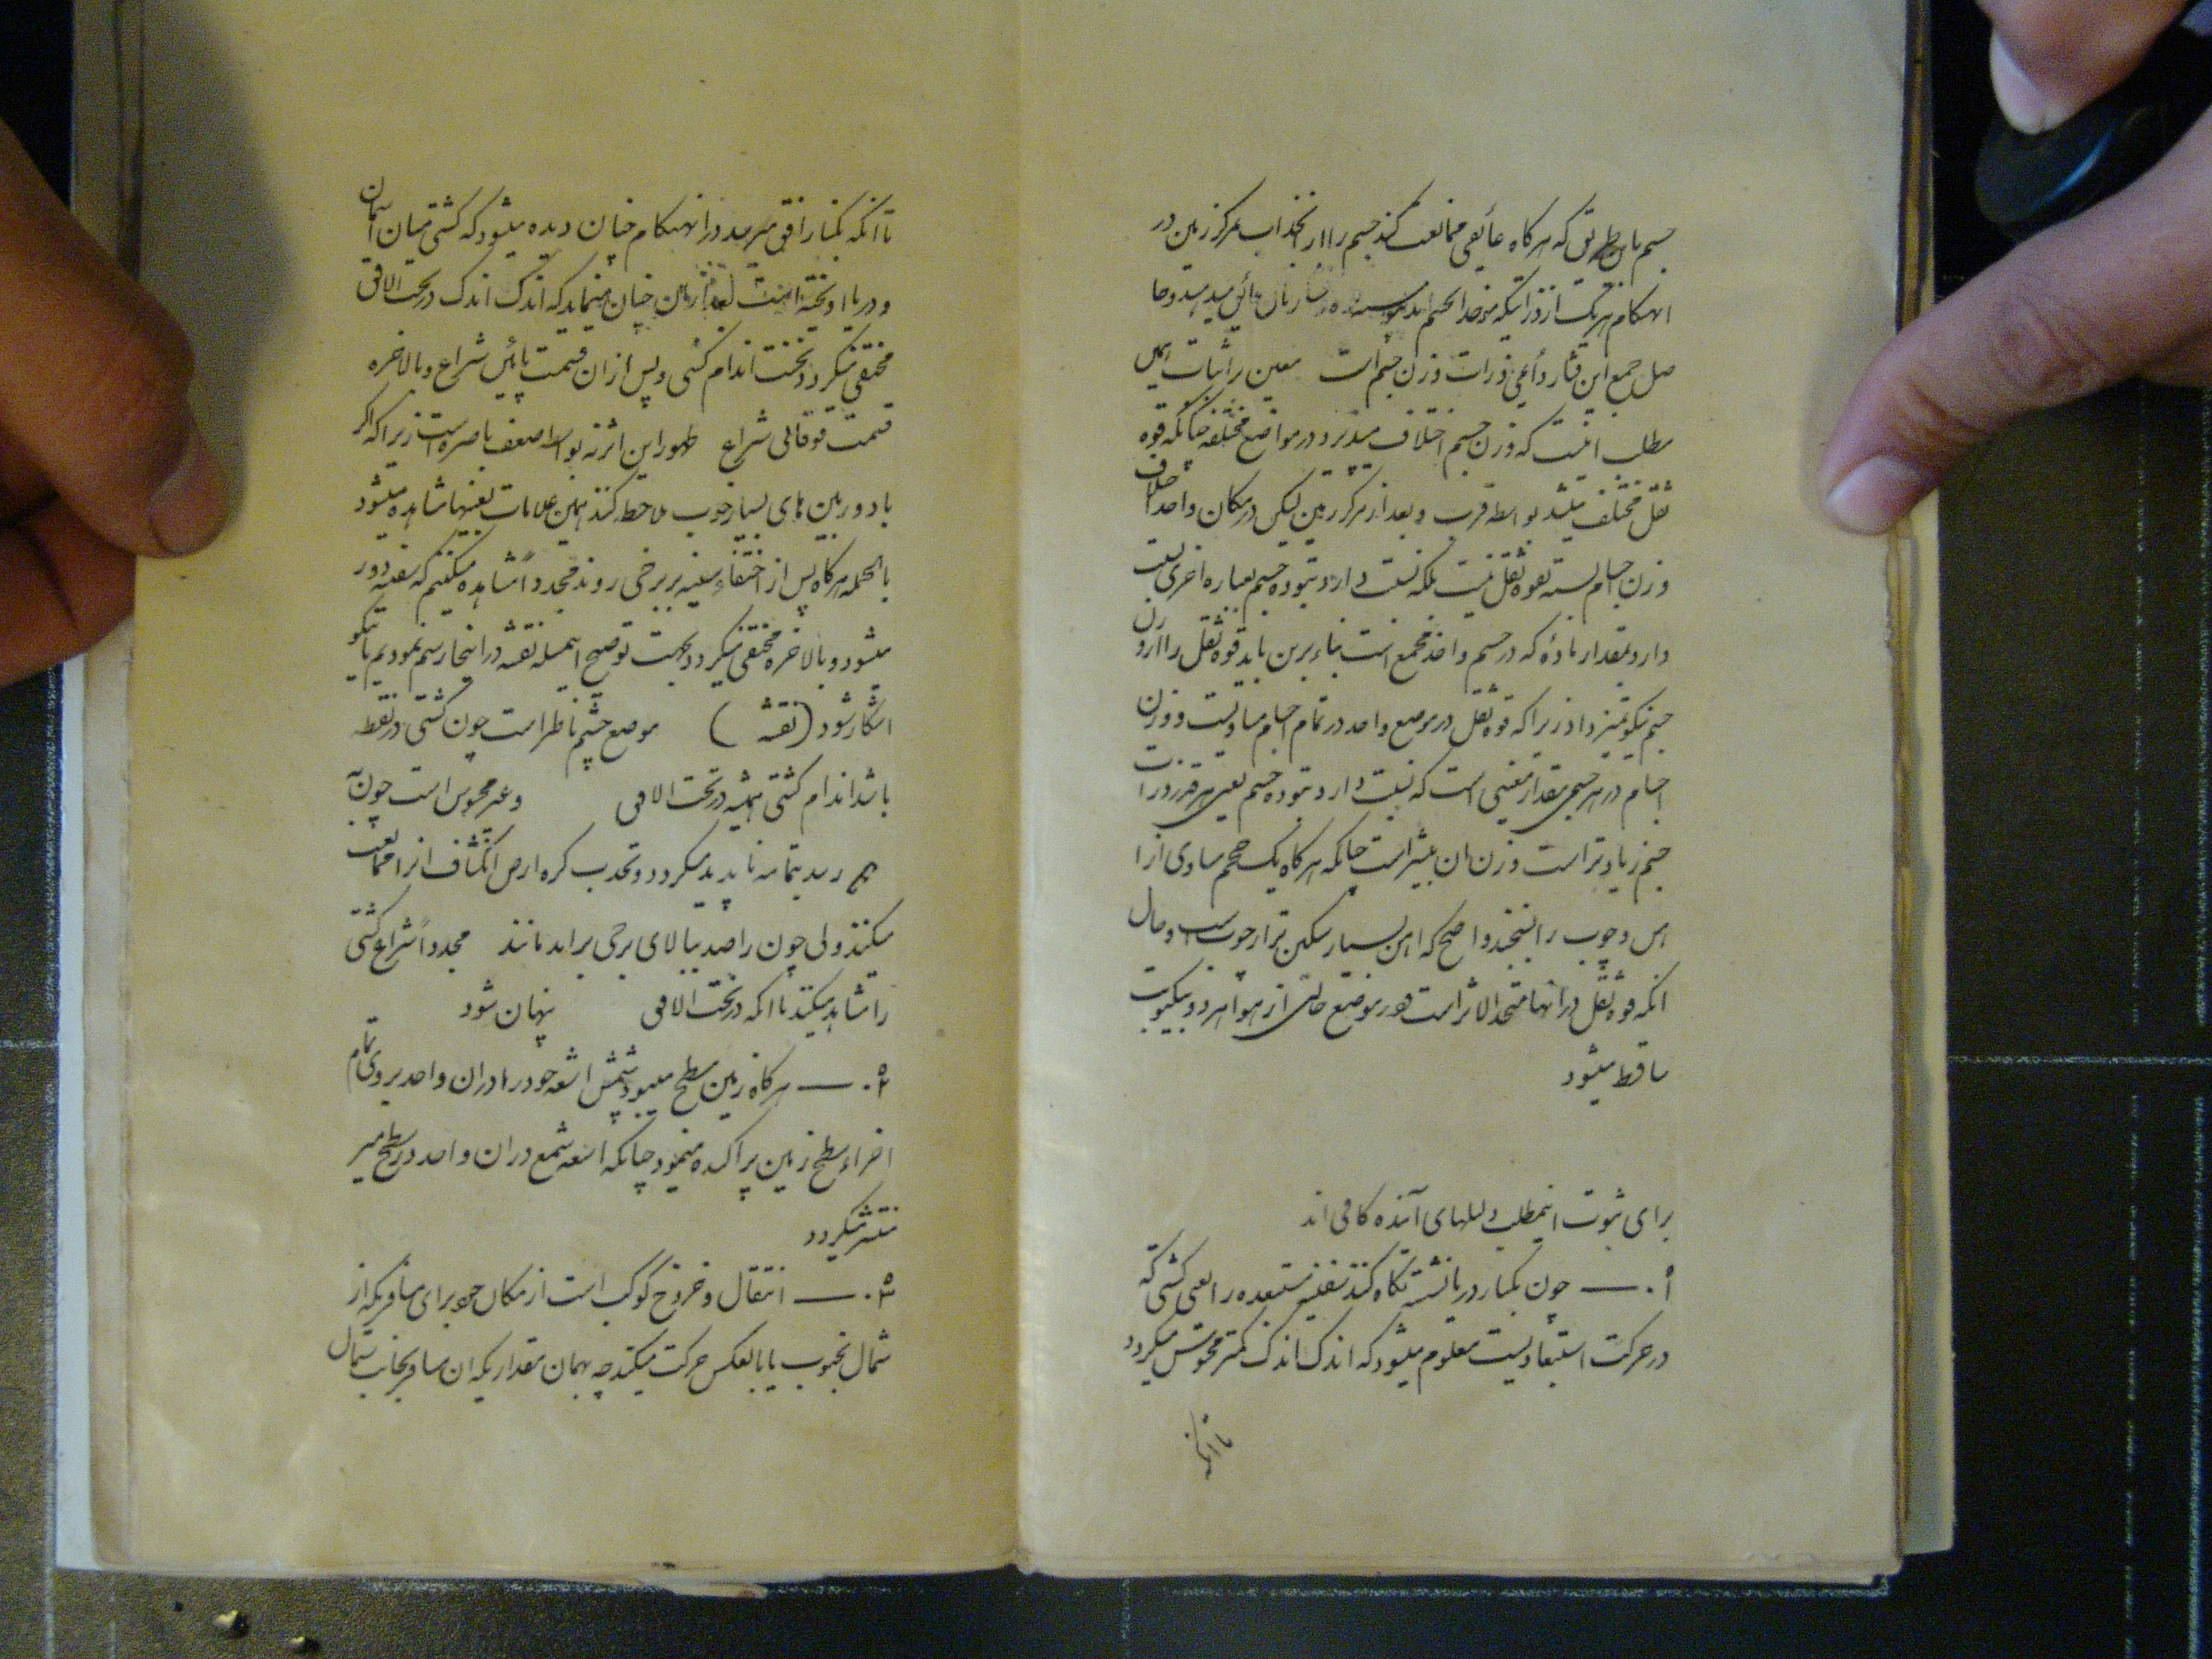 جسم باین طریق که هرکاه عائقی ممانعت کند جسم را از انجذاب بمرکز زمین در
انهنکام هر یک از ذراتیکه موجد الجسم اند
صل جمع این فشار واعی ذرات وزن جسم است معین را ثبات این
مطلب انست که وزن جسم اختلاف میپذیرد در مواضع مختلفه چنانکه قوه
ثقل مختلف میشد بواسطه قرب و بعد از مرکز زمین لیکن در مکان واحد اختلاف
وزن اجسام بسته بقوه ثقل نیست بلکه نسبت دارد بتوده جسم بعباره اخری نسبت
دارد بمقدار ماده که در جسم واحد مجتمع است بناء برین باید قوه ثقل را از وزن
جسم نیکو تمیز داد زیرا که قوه ثقل در موضع واحد در تمام اجسام مساویست و وزن
اجسام در هر جسمی مقدار معینی است که نسبت دارد بتوده جسم یعنی هر قدر ذرات
جسم زیادتر است وزن ان بیشتر است چنانکه هرکاه یک حجم مساوی از
اهن و چوب را بسنجند واضح که اهن بسیار سنکین تر از چوب است و حال
انکه قوه ثقل در انها متحد الاثر است و در موضع خالی از هوا هر دو بیکنوبت
ساقط میشود
برای ثبوت اینمطلب دلیلهای آینده کافی اند
۱ٌ. — چون بکنار دریا نشسته نکاه کنند سفینه مستبعده را یعنی کشتی که
در حرکت استبعادیست معلوم میشود که اندک اندک کمتر محسوس میکردد
تا انکه
تا انکه بکنار افق میرسد در انهنکام چنان دیده میشود که کشتی میان اسمان
و دریا اویخته است بعد از ان چنان مینماید که اندک اندک در تحت الافق
مختفی میکردد نخست اندام کشتی و پس از ان قسمت پائین شراع و بالاخره
قسمت فوقانی شراع ظهور این اثر نه بواسطه ضعف باصره است زیرا که اکر
با دوربین های بسیار خوب ملاحظه کنند همین علامات بعینها مشاهده میشود
بالجمله هرکاه پس از اختفاء سفینه بر برجی روند مجدداً مشاهده میکنیم که سفینه دور
میشود و بالاخره مختفی میکردد بجهت توضیح اینمسئله نقشه در اینجا رسم نمودیم تا نیکو
اشکار شود (نقشه ) موضع چشم ناظر است چون کشتی در نقطه
باشد اندام کشتی همیشه در تحت الافق و غیر محسوس است چون به
رسد بتمامه ناپدید میکردد و تحدب کره ارض انکشاف انرا ممانعت
میکند ولی چون راصد ببالای برجی براید مانند مجدداً شراع کشتی
را مشاهد میکند تا انکه در تحت الافق پنهان شود
۲ٌ. — هرکاه زمین مسطح میبود شمس اشعه خود را در ان واحد بر روی تمام
اجزاء سطح زمین پراکنده مینمود چنانکه اشعه شمع در ان واحد در سطح میز
منتشر میکردد
۳ٌ. — انتقال و خروج کوکب است از مکان خود برای مسافریکه از
شمال بجنوب یا بالعکس حرکت میکند چه بهمان مقداریکه ان مسافر بجانب شمال